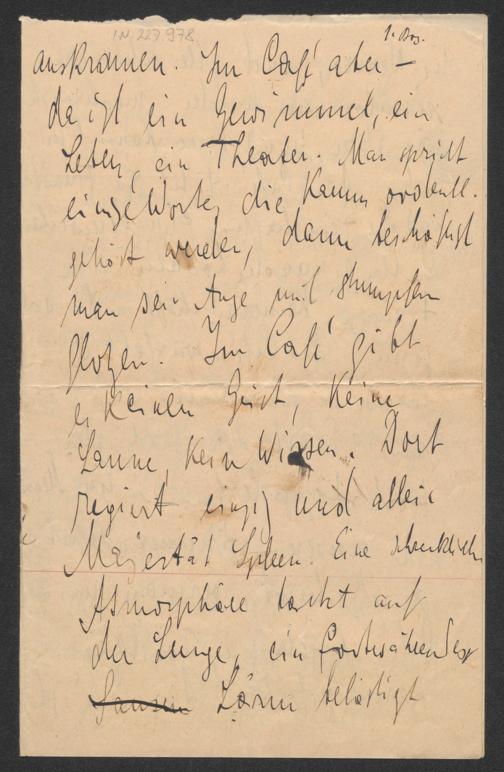 I.N. 223.978
auskramen. Im Café aber –
da ist ein Gewimmel, ein
Leben, ein Theater. Man spricht
einige Worte, die kaum ordentl.
gehört werden, dann beschäftigt
man sein Auge mit stumpfem
Glotzen. Im Café gibt
es keinen Geist, keine
Laune, kein Wissen. Dort
regiert einzig und allein
Majestät Spleen. Eine
Atmosphäre lastet auf
der Lunge, ein fortwährendes
Sausen Lärm belästigt